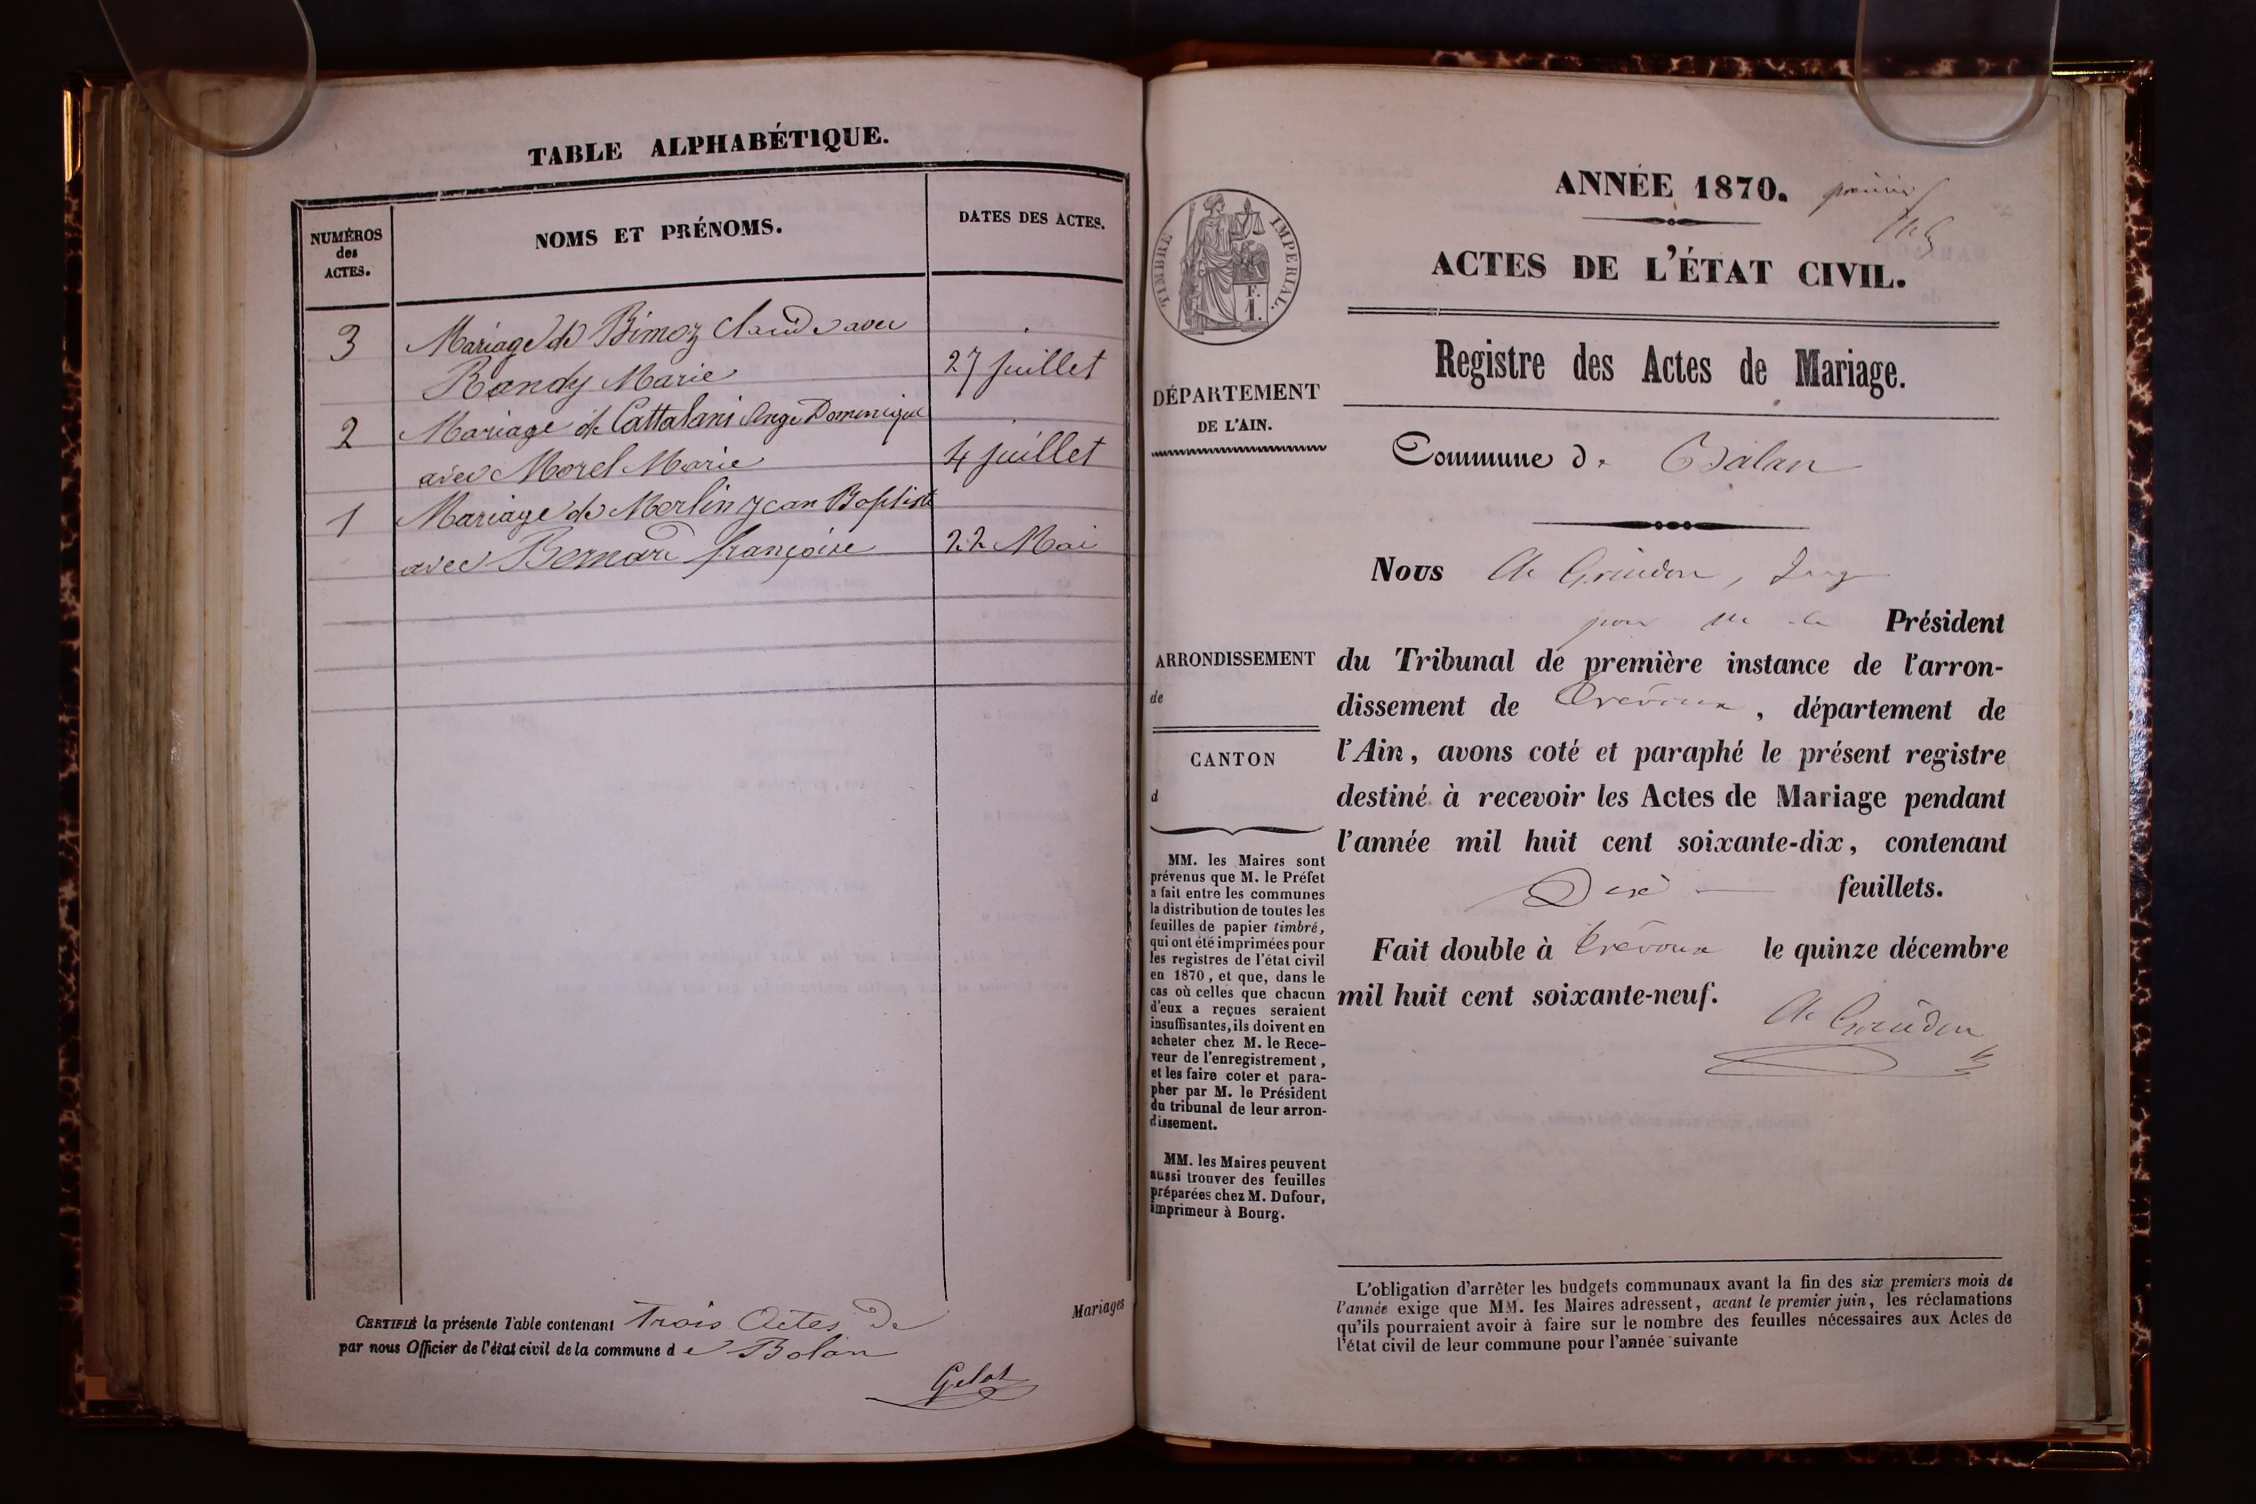 TABLE ALPHABÉTIQUE.
NUMÉROS
des
ACTES.
NOMS ET PRÉNOMS.
DATES DES ACTES.
3 Mariage de Bimoz Claude avec
Randy Marie 27 juillet
2 Mariage de Cattalani Ange Dominique
avec Morel Marie 4 juillet
1 Mariage de Merlin Jean Baptiste
avec Bernard françoise 22 Mai
CERTIFIÉ la présente Table contenant trois Actes de Mariages
par nous Officier de l'état civil de la commune de Balan
Gelot
ANNÉE 1870. premier
ACTES DE L'ÉTAT CIVIL.
TIMBRE IMPÉRIAL.
F.
1.
Registre des Actes de Mariage.
DÉPARTEMENT
DE L'AIN.
Commune de Balan
Nous
Président
ARRONDISSEMENT
de
CANTON
d
du Tribunal de première instance de l'arron-
dissement de Trévoux, département de
l'Ain, avons coté et paraphé le présent registre
destiné à recevoir les Actes de Mariage pendant
l'année mil huit cent soixante-dix, contenant
feuillets.
Fait double à Trévoux le quinze décembre
mil huit cent soixante-neuf.
MM. les Maires sont
prévenus que M. le Préfet
a fait entre les communes
la distribution de toutes les
feuilles de papier timbré,
qui ont été imprimées pour
les registres de l'état civil
en 1870, et que, dans le
cas où celles que chacun
d'eux a reçues seraient
insuffisantes, ils doivent en
acheter chez M. le Rece-
veur de l'enregistrement,
et les faire coter et para-
pher par M. le Président
du tribunal de leur arron-
dissement.
MM. les Maires peuvent
aussi trouver des feuilles
préparées chez M. Dufour,
imprimeur à Bourg.
L'obligation d'arrêter les budgets communaux avant la fin des six premiers mois de
l'année exige que MM. les Maires adressent, avant le premier juin, les réclamations
qu'ils pourraient avoir à faire sur le nombre des feuilles nécessaires aux Actes de
l'état civil de leur commune pour l'année suivante